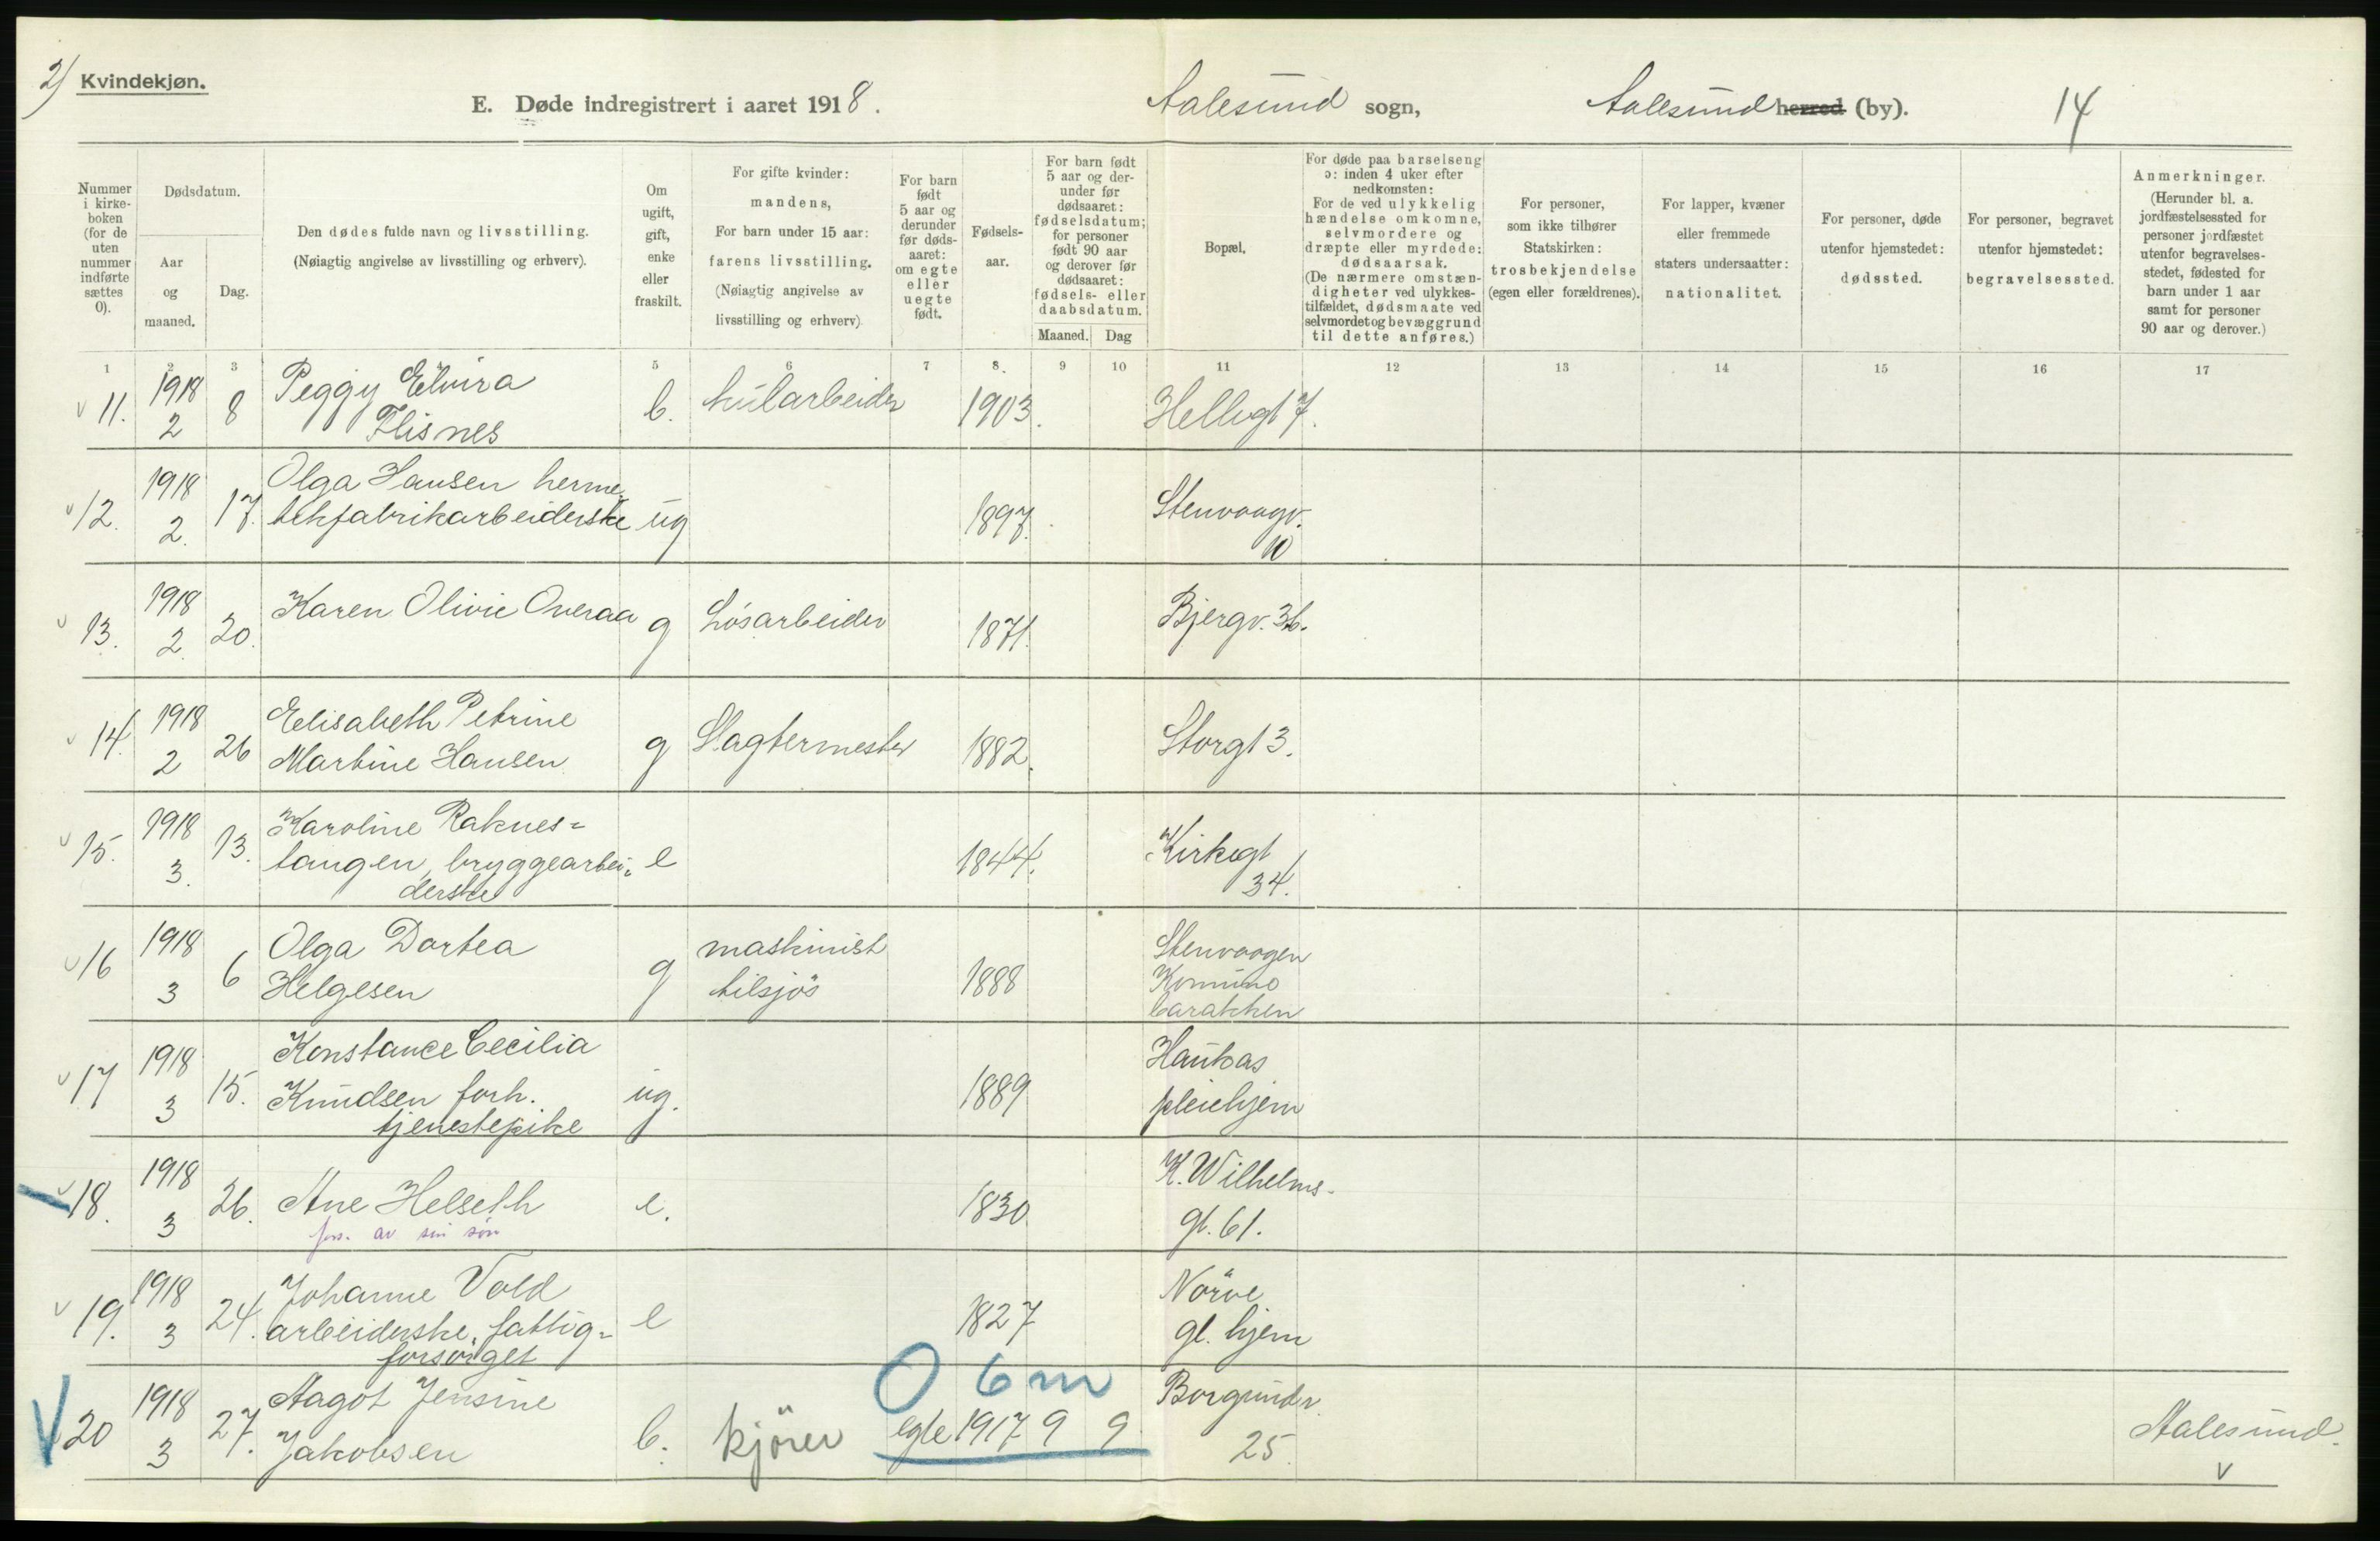 2) Kvindekjøn.
E. Døde indregistrert i aaret 1918. Aalesund sogn, Aalesund herred (by). 14
Nummer i kirke-boken (for de uten nummer indførte sættes 0).
Dødsdatum.
Aar og maaned.
Dag.
Den dødes fulde navn og livsstilling.
(Nøiagtig angivelse av livsstilling og erhverv).
Om ugift, gift, enke eller fraskilt.
For gifte kvinder: mandens,
For barn under 15 aar: farens livsstilling.
(Nøiagtig angivelse av livsstilling og erhverv)
For barn født 5 aar og derunder før døds-aaret: om egte eller uegte født.
Fødsels-aar.
For barn født 5 aar og der-under før dødsaaret: fødselsdatum; for personer født 90 aar og derover før dødsaaret: fødsels- eller daabsdatum.
Maaned. Dag
Bopæl.
For døde paa barselseng ɔ: inden 4 uker efter nedkomsten:
For de ved ulykkelig hændelse omkomne, selvmordere og dræpte eller myrdede: dødsaarsak.
(De nærmere omstæn-digheter ved ulykkes-tilfældet, dødsmaate ved selvmordet og bevæggrund til dette anføres.)
For personer, som ikke tilhører Statskirken: trosbekjendelse (egen eller forældrenes).
For lapper, kvæner eller fremmede staters undersaatter: nationalitet.
For personer, døde utenfor hjemstedet: dødssted.
For personer, begravet utenfor hjemstedet: begravelsessted.
Anmerkninger.
(Herunder bl. a. jordfæstelsessted for personer jordfæstet utenfor begravelses-stedet, fødested for barn under 1 aar samt for personer 90 aar og derover.)
1 2 3 5 6 7 8. 9 10 11 12 13 14 15 16 17
11. 1918 2 8 Peggy Elvira Flisnes b. kularbeider 1903. Hellegt 7.
12. 1918 2. 17. Olga Hansen herme-tekfabrikarbeiderske ug 1897. Stenvaagv. 10
13. 1918 2. 20. Karen Olivie Overaa g Løsarbeider 1871. Bjergv. 36.
14. 1918 2 26 Elisabeth Petrine Martine Hansen g Slagtermester 1882. Storgt 3.
15. 1918 3. 13. Karoline Raknes=tangen, bryggearbei=derske e 1844. Kirkegt 34.
16 1918 3 6 Olga Dortea Helgesen g maskinist tilsjøs 1888 Stenvaagen Komune barakken
17 1918 3 15. Konstance Cecilia Knudsen forh. tjenestepike ug. 1889 Haukas pleiehjem
18. 1918 3 26. Ane Helseth e. 1830 K. Wilhelms-gt. 61.
fors. av sin søn
19. 1918 3 24. Johanne Vold arbeiderske, fattig=forsørget e 1827 Nørve gl. hjem
0 6 m
20 1918 3 27. Aagot Jensine Jakobsen b. kjører egte 1917 9 9 Borgundv. 25. Aalesund.
v